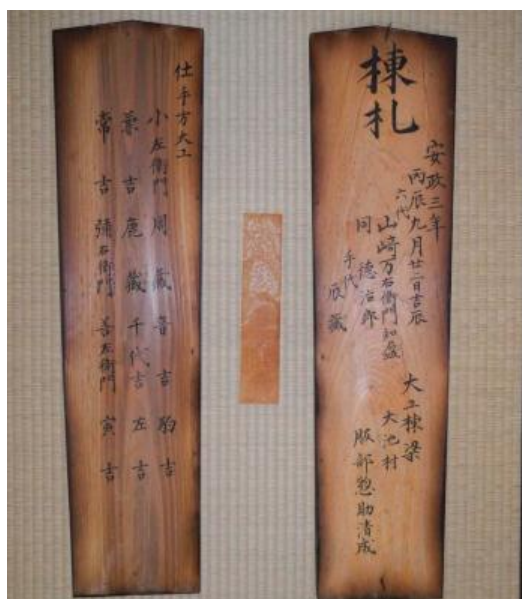 棟札
安政三年
丙辰九月廿一日吉辰
六代
山崎万右衛門知義
同 徳治郎
手代
辰藏
大工棟梁
大池村
服部惣助清成
仕手方大工
小左衛門 周藏 音吉 駒吉
兼吉 鹿藏 千代吉 左吉
常吉 彌右衛門 善左衛門 寅吉